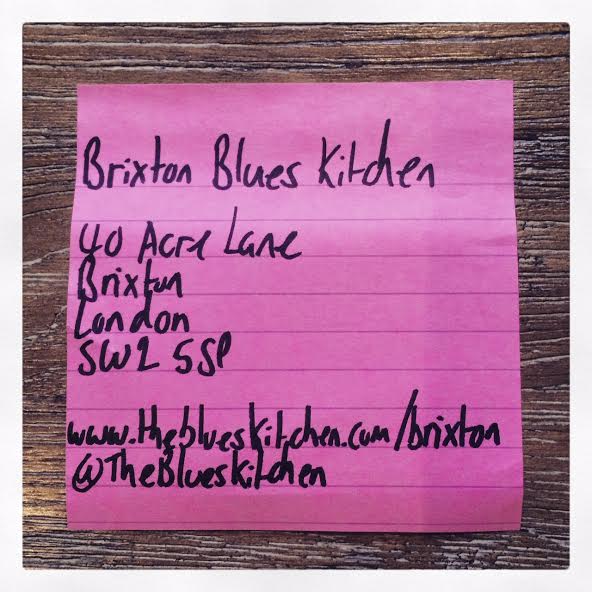 Brixton Blues Kitchen
40 Acre Lane
Brixton
London
SW2 5SP
www.theblueskitchen.com/brixton
@TheBluesKitchen